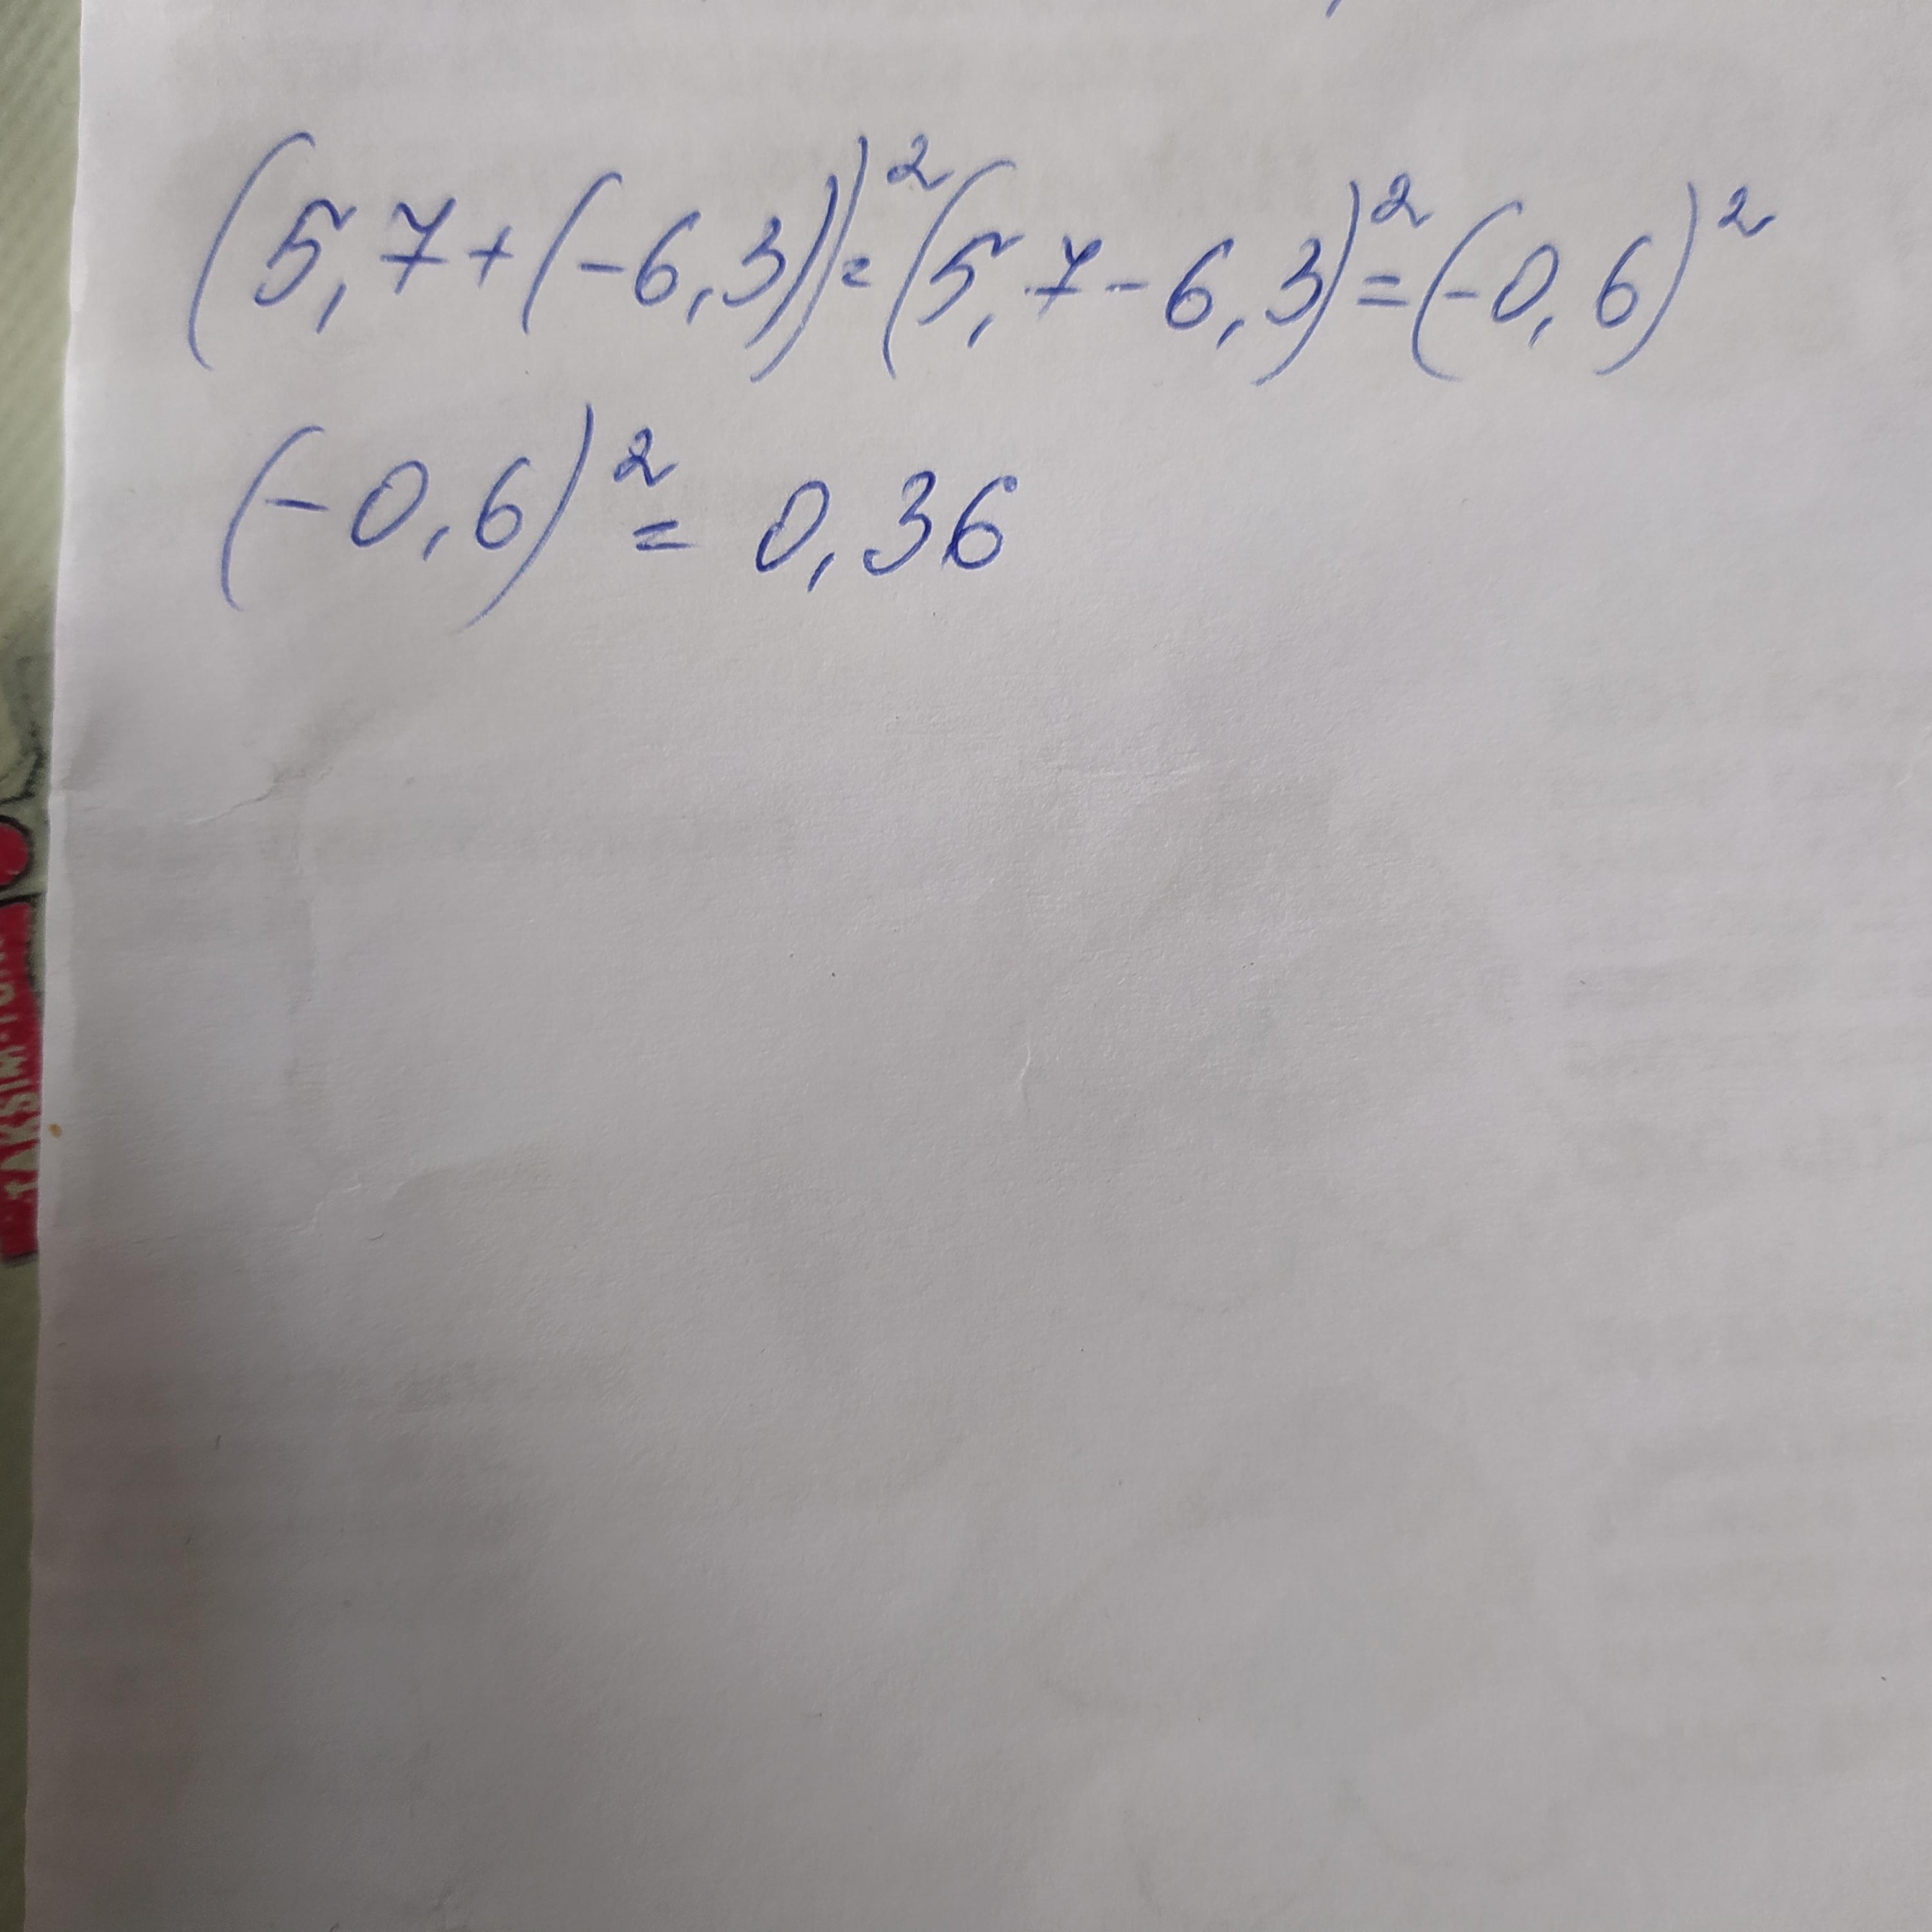 (5,7+(-6,3))²=(5,7-6,3)²=(-0,6)²
(-0,6)²= 0,36
TAKSIM